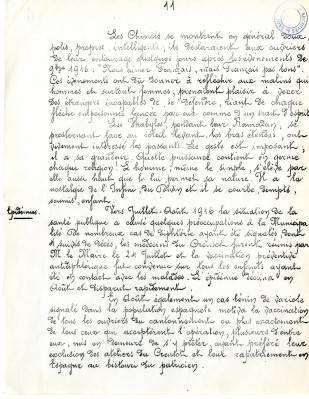 11
Les Chinois se montrent en général doux,
polis, propres, intelligents ; ils déclaraient aux ouvriers
de leur entourage quelques jours après les événements de
9bre 1916 : "Nous aimer Français, mais Français pas bons".
Ces événements ont dû donner à réfléchir aux malins qui
hommes et surtout femmes, prenaient plaisir à vexer
des étrangers incapables de se défendre, riant de chaque
flèche empoisonnée lancée par eux comme d'un trait d'esprit
Les Khabyles pendant leur Ramadan, se
prosternant face au soleil levant, les bras étendus, ont
vivement intéressé les passants. Le geste est imposant ;
il a sa grandeur. Quelle puissance contient en germe
chaque religion ! L'homme, même le simple, s'élève par
elle aussi haut que le lui permet sa nature. Il a la
nostalgie de l'Infini, du Divin et il se courbe, dompté,
soumis, enfant.
Epidémies. Vers Juillet-Août 1916 la situation de la
santé publique a causé quelques préoccupations à la Municipa
lité. De nombreux cas de diphtérie ayant été signalés dont
suivis de décès, les médecins du Creusot furent réunis par
M. le Maire le 24 Juillet et la vaccination préventive
antidiphtérique fut convenue sur tous les enfants ayant
été en contact avec les malades. L'épidémie décrut en
Août et disparut rapidement.
En Août également un cas bénin de variole
signalé dans la population espagnole motiva la vaccination
de tous les ouvriers du cantonnement ou plus exactement
de tous ceux qui acceptèrent l'opération, plusieurs d'entre
eux, mis en demeure de s'y prêter, ayant préféré leur
exclusion des ateliers du Creusot et leur rapatriement en
Espagne au bistouri du praticien.